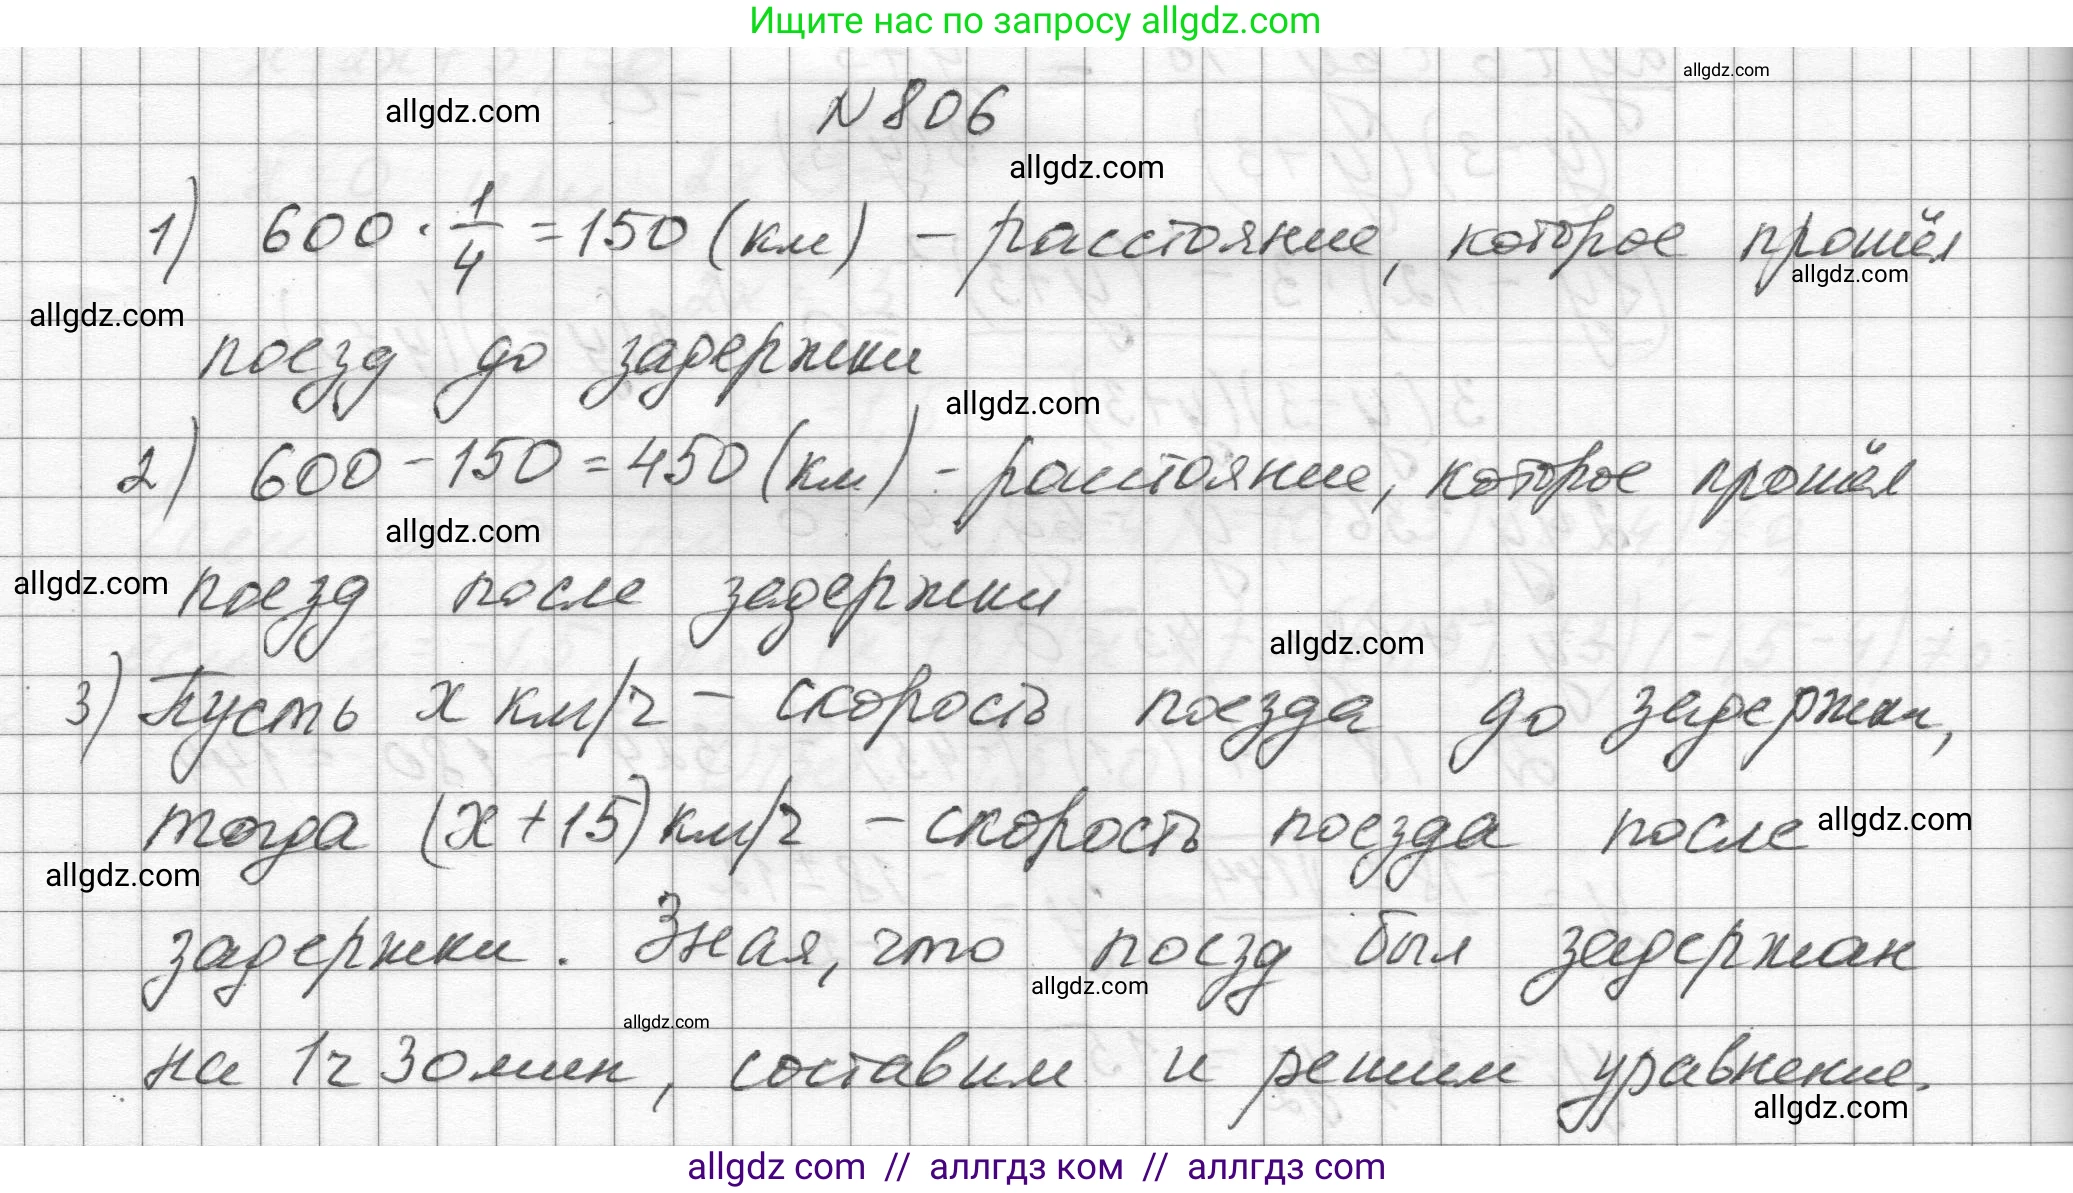 Ищите нас по запросу allgdz.com
allgdz.com
allgdz.com
№ 806
allgdz.com
1) 600 · 1/4 = 150 (км) – расстояние, которое прошёл
allgdz.com
allgdz.com
поезд до задержки
allgdz.com
2) 600 – 150 = 450 (км) – расстояние, которое прошёл
allgdz.com
allgdz.com
поезд после задержки
allgdz.com
3) Пусть x км/ч – скорость поезда до задержки,
тогда (x + 15) км/ч – скорость поезда после
allgdz.com
allgdz.com
задержки. Зная, что поезд был задержан
allgdz.com
allgdz.com
на 1ч 30мин, составим и решим уравнение.
allgdz.com
allgdz com // аллгдз ком // аллгдз com